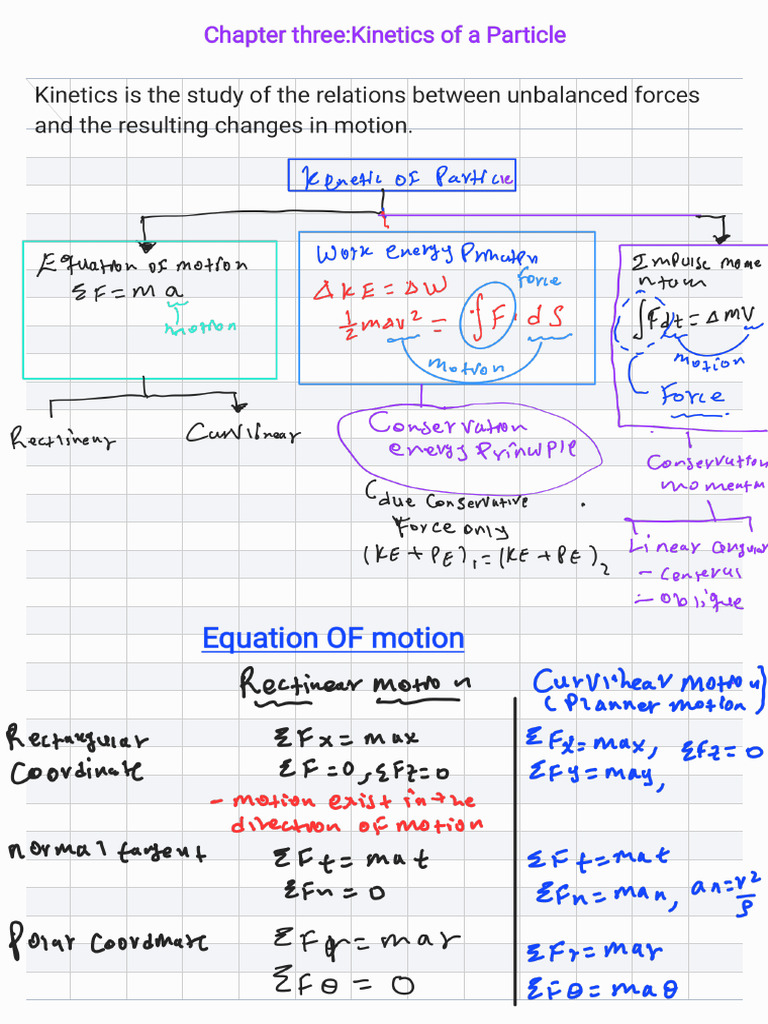 Chapter three:Kinetics of a Particle
Kinetics is the study of the relations between unbalanced forces
and the resulting changes in motion.
Kenetic of Particle
Equation of motion
ΣF = m a
motion
Work energy Principn
force
ΔKE = ΔW
½ mΔv² = ∫F · dS
motion
Impulse mome
ntum
∫Fdt = ΔmV
motion
Force
Rectlinear
Curvlinear
Conservation
energy Prinwple
due conservative
Force only
(KE + PE)₁ = (KE + PE)₂
Conservation
momentm
Linear Cangular
- Conserval
- oblique
Equation OF motion
Rectinear motion
Curvilhear motion
(Planner motion)
Rectangular
Coordinate
ΣFx = max
ΣF = 0, ΣFz = 0
- motion exist in the
direction of motion
ΣFx = max, ΣFz = 0
ΣFy = may,
normal tangent
ΣFt = mat
ΣFn = 0
ΣFt = mat
ΣFn = man, an = v²/ρ
Polar Coordinate
ΣFr = mar
ΣFθ = 0
ΣFr = mar
ΣFθ = maθ